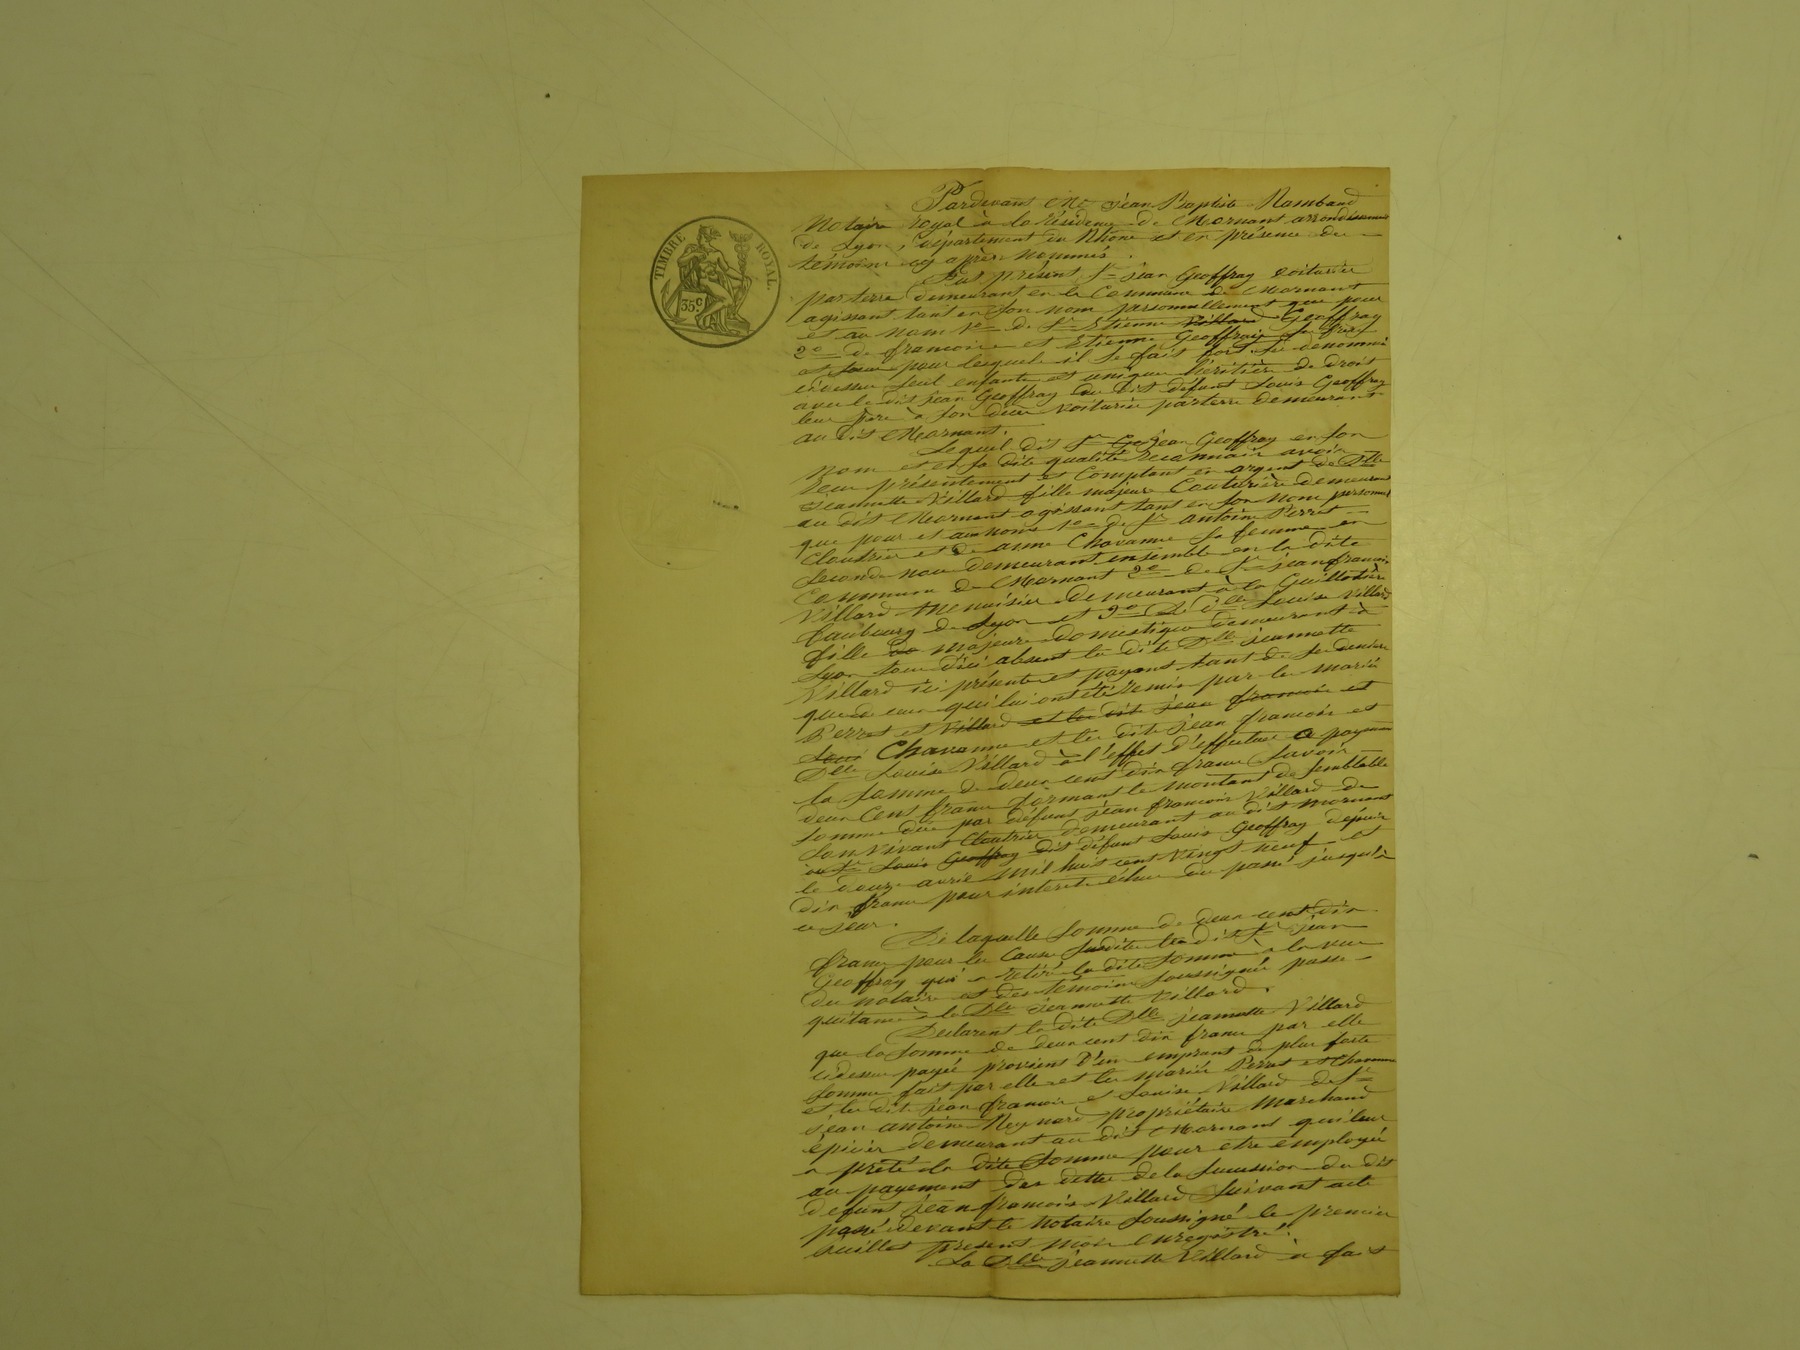 TIMBRE ROYAL.
35c
Pardevant Me Jean Baptiste Rambaud
Notaire royal à la résidence de Mornant arrondissement
de Lyon, département du Rhône et en présence des
témoins cy après nommés.
Est présent Sr jean Geoffray voiturier
par terre demeurant en la Commune de Mornant
agissant tant en son nom personnellement que pour
et au nom 1o de Sr Etienne Villard Geoffray
2o de francoise et Etienne Geoffray ses frere
et soeur pour lesquels il se fait fort les denommés
cidessus seul enfants et unique héritiers de droit
avec le dit jean Geoffray du dit défunt Louis Geoffray
leur père à son décès voiturier par terre demeurant
au dit Mornant.
Lequel dit Sr jean Geoffray en son
nom et en sa dite qualité reconnait avoir
recu présentement et Comptant en argent de Dlle
Jeannette Villard fille majeure Couturière demeurant
au dit Mornant agissant tant en son nom personnel
que pour et aux noms 1o de Sr antoine Perret
Cloutrier et de anne Chavanne sa femme en
seconde noce demeurant ensemble en la dite
Commune de Mornant 2o de Sr jean francois
Villard Menuisier demeurant à la Guillotière
faubourg de Lyon et 3o de Dlle Louise Villard
fille majeure domestique demeurant à
Lyon tous d'ici absent la dite Dlle jeannette
Villard ici présente et payant tant de ses deniers
que de ceux qui lui ont été remis par les mariés
Perret et Villard et les dits jean francois et
Louis Chavanne et les dits jean francois et
Dlle Louise Villard à l'effet d'effectuer ce payement
la somme de deux cent dix francs savoir
deux Cens francs formant le montant de semblable
somme due par défunt jean francois Villard de
son vivant Cloutrier demeurant au dit Mornant
au Sr Louis Geoffray dit défunt Louis Geoffray depuis
le douze avril mil huit cent vingt neuf et
dix francs pour interets échus du passé jusqu'à
ce jour.
De laquelle somme de deux cent dix
francs pour les Causes susdites le dit Sr jean
Geoffray qui a retiré la dite somme à la vue
du notaire et des témoins soussignés passe
quitance à la Dlle jeannette Villard.
Déclarent la dite Dlle jeannette Villard
que la somme de deux cent dix francs par elle
cidessus payée provient d'un emprunt de plus forte
somme fait par elle et les mariés Perret et Chavanne
et les dits jean francois et Louise Villard de Sr
jean antoine Reynard propriétaire Marchand
épicier demeurant au dit Mornant qui leur
a prété la dite somme pour etre employée
au payement des dettes de la succession du dit
défunt jean francois Villard suivant acte
passé devant le notaire soussigné le premier
juillet present mois enregistré.
La Dlle jeannette Villard a fait